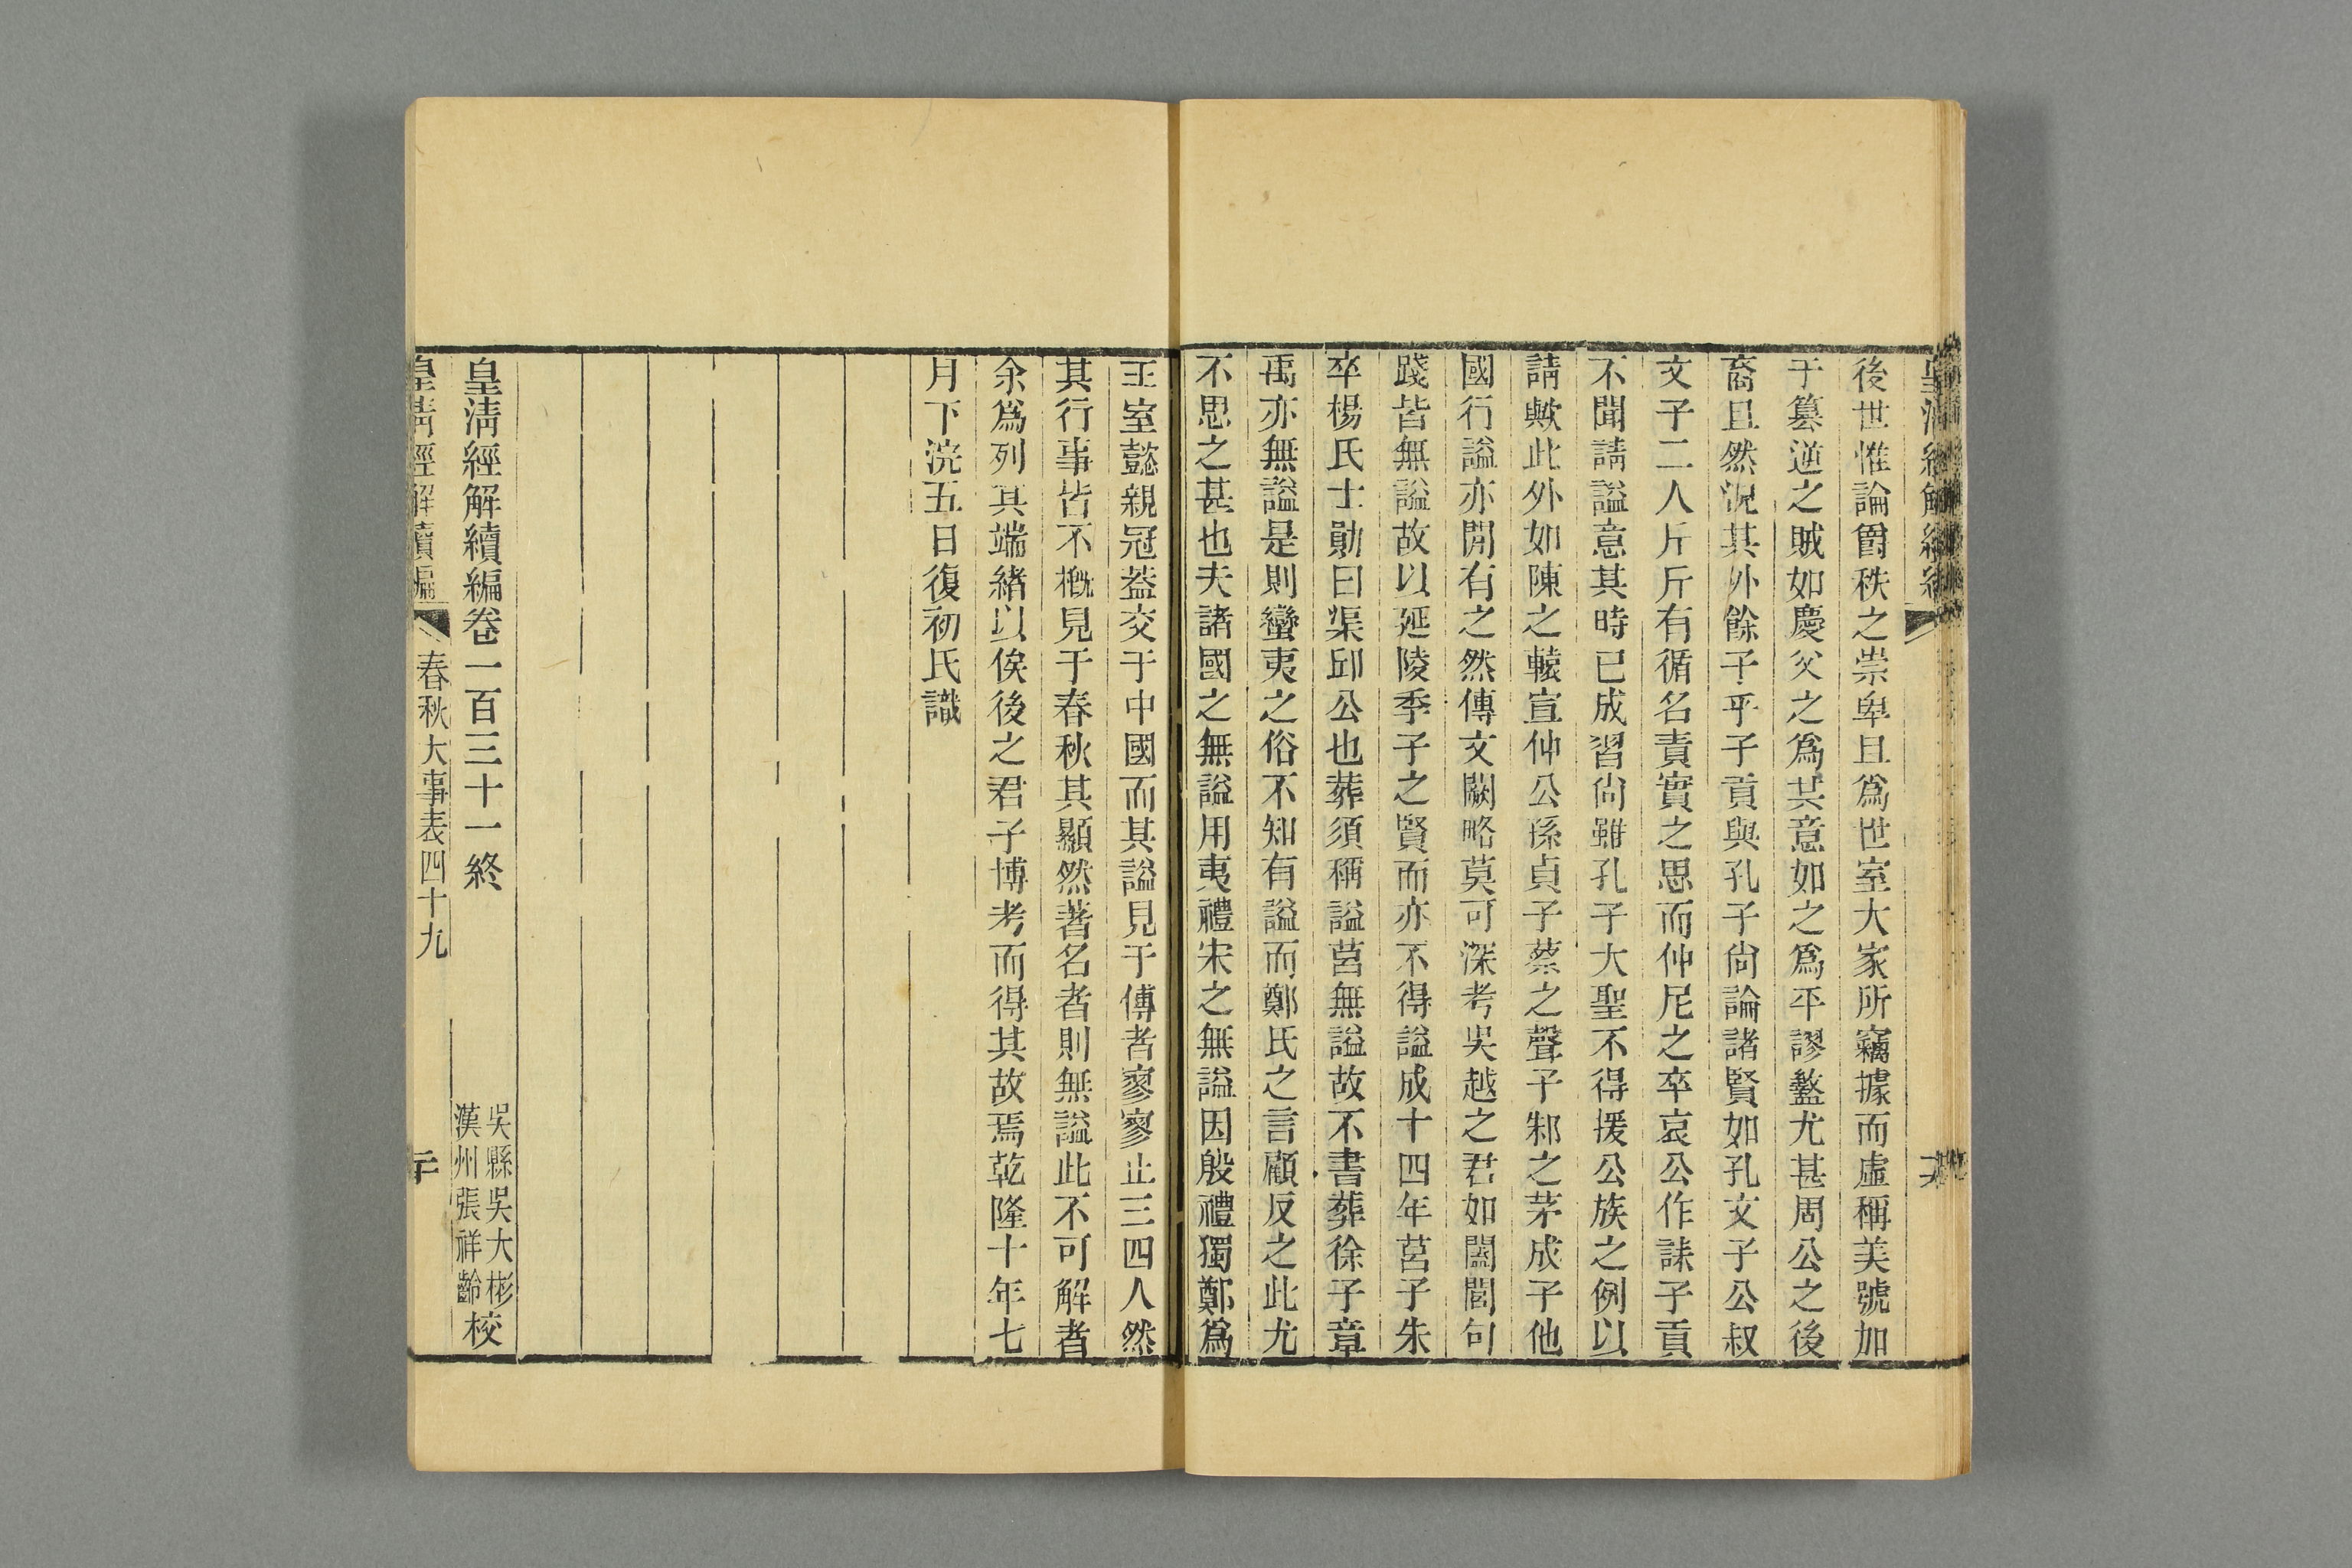 後世惟論爵秩之崇卑且爲世室大家所竊據而虛稱美號加
于簒逆之賊如慶父之爲共意如之爲平謬盭尤甚周公之後
裔且然況其外餘子乎子貢與孔子尙論諸賢如孔文子公叔
文子二人斤斤有循名責實之思而仲尼之卒哀公作誄子貢
不聞請謚意其時已成習尙雖孔子大聖不得援公族之例以
請歟此外如陳之轅宣仲公孫貞子蔡之聲子邾之茅成子他
國行謚亦閒有之然傳文闕略莫可深考吳越之君如闔閭句
踐皆無謚故以延陵季子之賢而亦不得謚成十四年莒子朱
卒楊氏士勛曰渠邱公也葬須稱謚莒無謚故不書葬徐子章
禹亦無謚是則蠻夷之俗不知有謚而鄭氏之言顧反之此尤
不思之甚也夫諸國之無謚用夷禮宋之無謚因殷禮獨鄭爲
王室懿親冠蓋交于中國而其謚見于傳者寥寥止三四人然
其行事皆不槪見于春秋其顯然著名者則無謚此不可解者
余爲列其端緒以俟後之君子博考而得其故焉乾隆十年七
月下浣五日復初氏識
皇淸經解續編卷一百三十一終
吳縣吳大彬
漢州張祥齡校
皇淸經解續編 春秋大事表四十九 二十